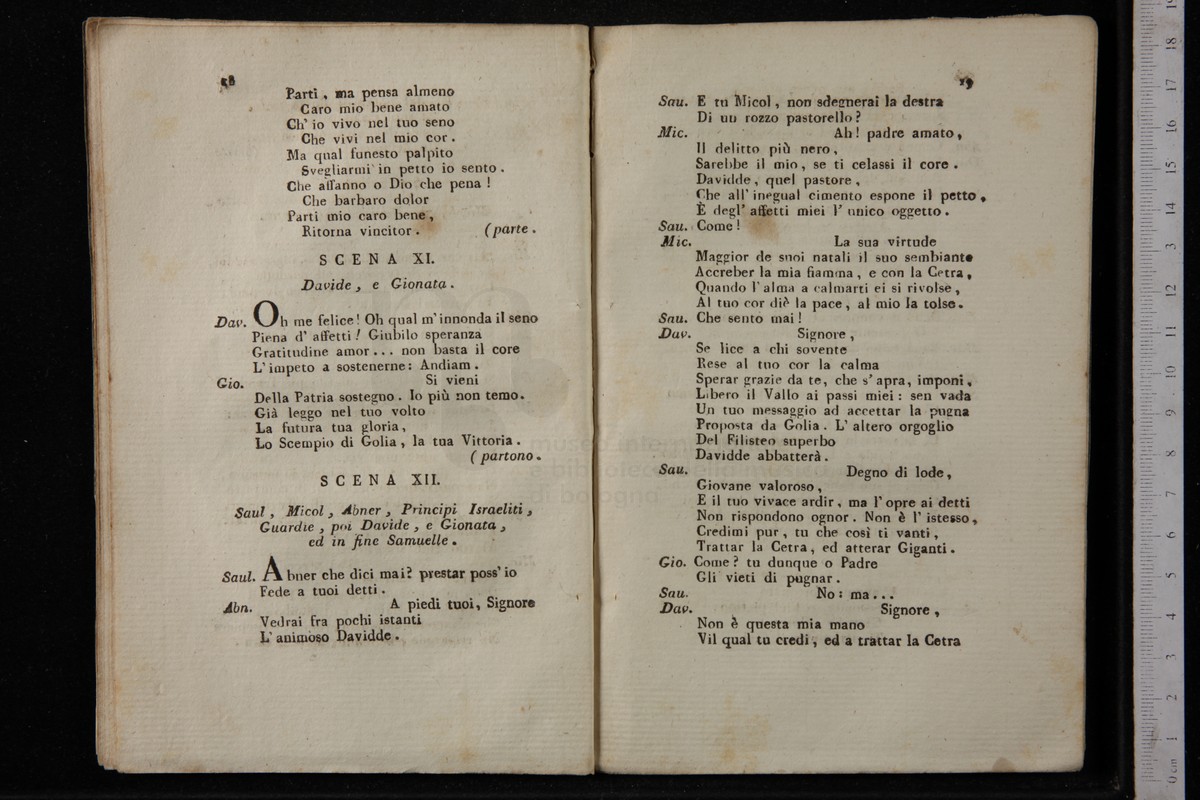 58
Parti, ma pensa almeno
Caro mio bene amato
Ch' io vivo nel tuo seno
Che vivi nel mio cor.
Ma qual funesto palpito
Svegliarmi in petto io sento.
Che affanno o Dio che pena!
Che barbaro dolor
Parti mio caro bene,
Ritorna vincitor. (parte.
SCENA XI.
Davide, e Gionata.
Dav. Oh me felice! Oh qual m' innonda il seno
Piena d' affetti! Giubilo speranza
Gratitudine amor... non basta il core
L' impeto a sostenerne: Andiam.
Gio. Si vieni
Della Patria sostegno. Io più non temo.
Già leggo nel tuo volto
La futura tua gloria,
Lo Scempio di Golia, la tua Vittoria.
(partono.
SCENA XII.
Saul, Micol, Abner, Principi Israeliti,
Guardie, poi Davide, e Gionata,
ed in fine Samuelle.
Saul. Abner che dici mai? prestar poss' io
Fede a tuoi detti.
Abn. A piedi tuoi, Signore
Vedrai fra pochi istanti
L' animoso Davidde.
19
Sau. E tu Micol, non sdegnerai la destra
Di un rozzo pastorello?
Mic. Ah! padre amato,
Il delitto più nero,
Sarebbe il mio, se ti celassi il core.
Davidde, quel pastore,
Che all' inegual cimento espone il petto,
È degl' affetti miei l' unico oggetto.
Sau. Come!
Mic. La sua virtude
Maggior de suoi natali il suo sembiante
Accreber la mia fiamma, e con la Cetra,
Quando l' alma a calmarti ei si rivolse,
Al tuo cor diè la pace, al mio la tolse.
Sau. Che sento mai!
Dav. Signore,
Se lice a chi sovente
Rese al tuo cor la calma
Sperar grazie da te, che s' apra, imponi,
Libero il Vallo ai passi miei: sen vada
Un tuo messaggio ad accettar la pugna
Proposta da Golia. L' altero orgoglio
Del Filisteo superbo
Davidde abbatterà.
Sau. Degno di lode,
Giovane valoroso,
E il tuo vivace ardir, ma l' opre ai detti
Non rispondono ognor. Non è l' istesso,
Credimi pur, tu che così ti vanti,
Trattar la Cetra, ed atterar Giganti.
Gio. Come? tu dunque o Padre
Gli vieti di pugnar.
Sau. No: ma...
Dav. Signore,
Non è questa mia mano
Vil qual tu credi, ed a trattar la Cetra